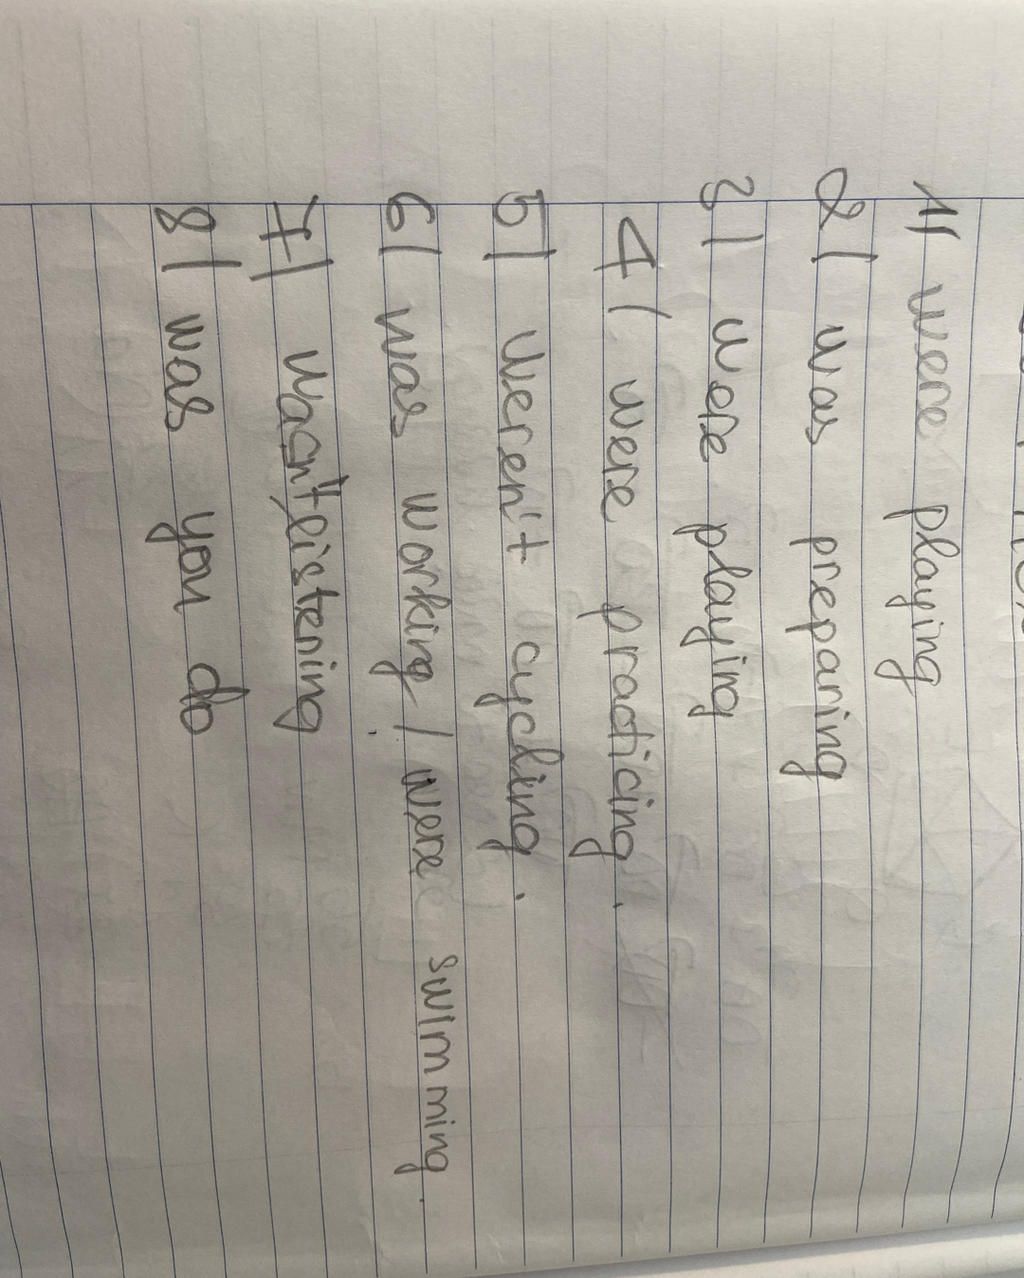 1) were playing
2) was preparing
3) were playing
4) were practicing.
5) weren't cycling.
6) was working / were swimming.
7) wacn't listening
8) was you do